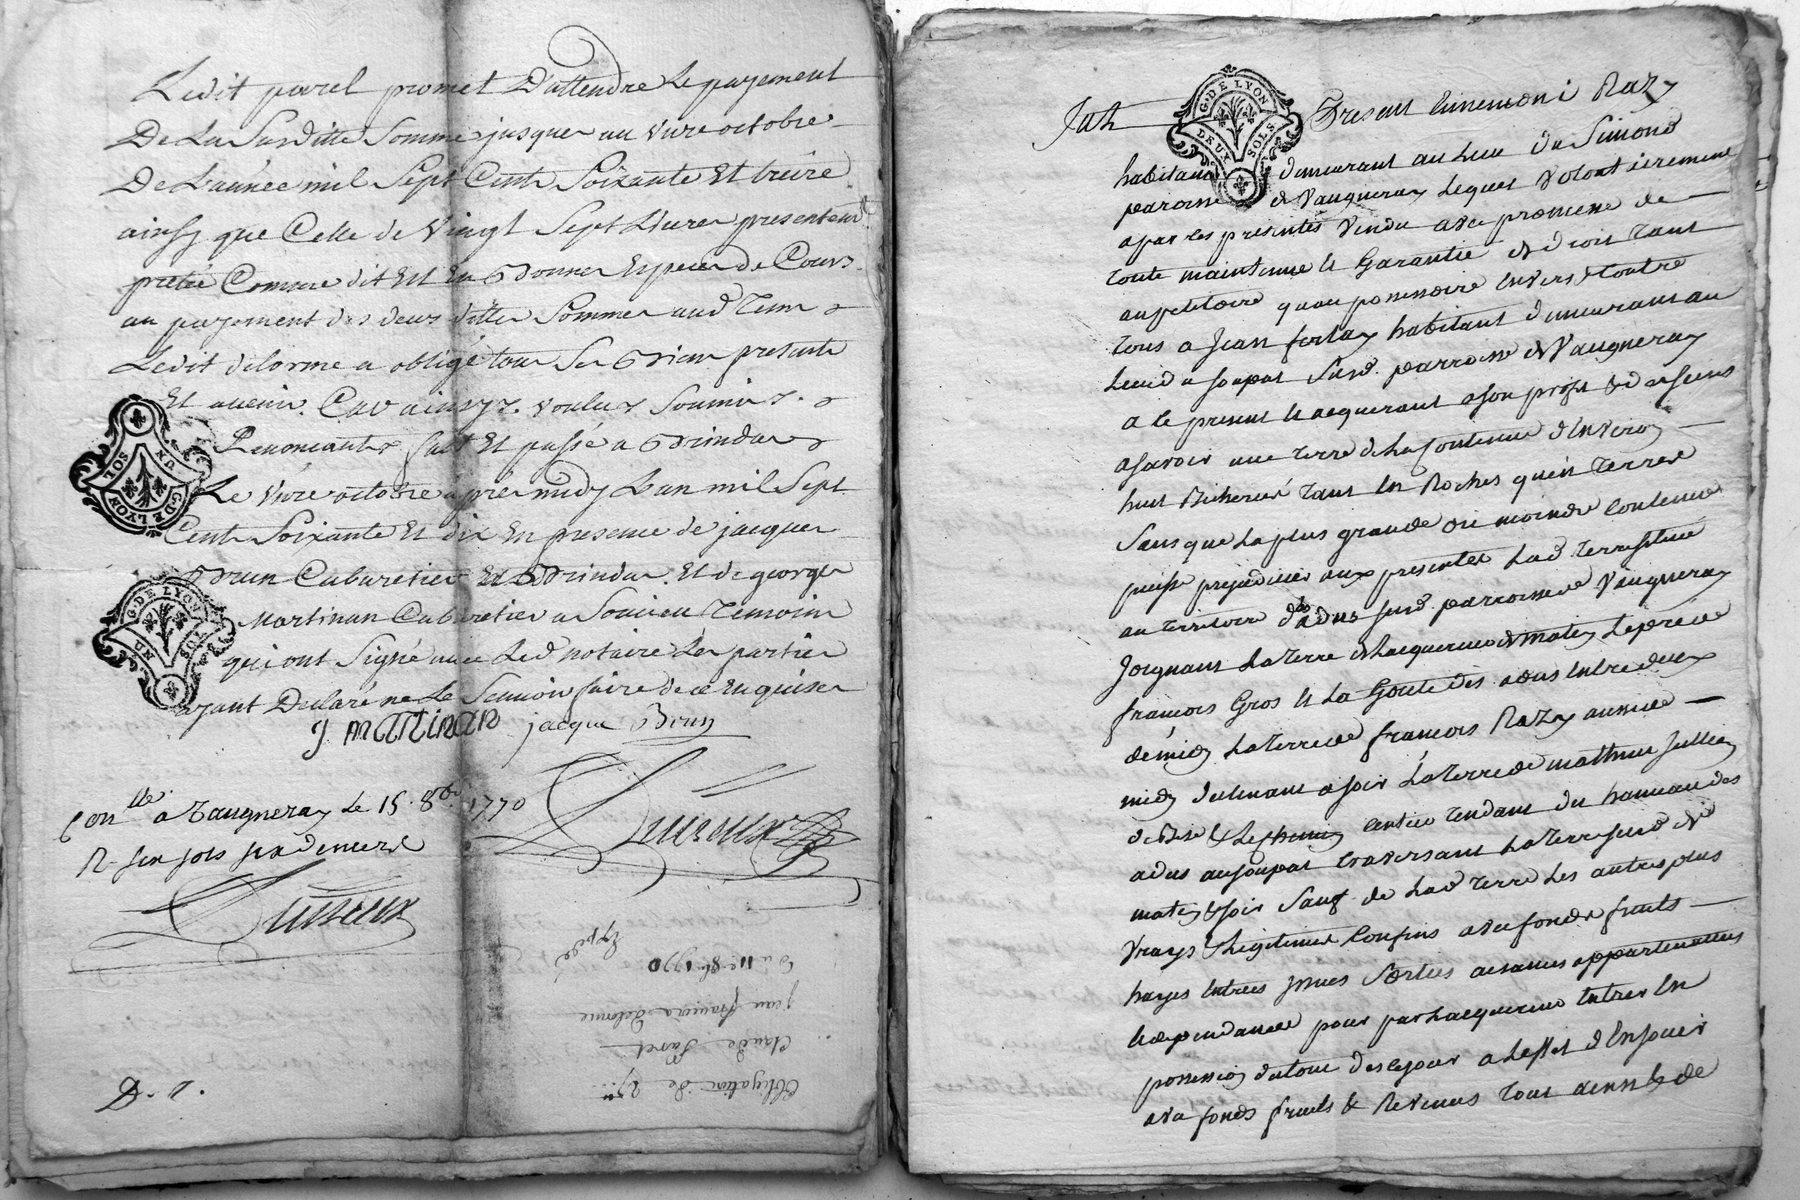 Ledit parel promet D'attendre Le payement
De La Susditte Somme jusques au Unze octobre
De L'année mil Sept Cents Soixante Et treize
ainsy que Celle de Vingt Sept Livres presentement
pretée Comme dit Est En Bonnes Especes de Cours
au payement des deux dittes Sommes aud Terme
Ledit delorme a obligé tous Ses Biens presents
Et avenir. Car ainsy. voulu. Soumis.
UN SOL
G. DE LYON
Renonceants fait Et passé a Brindas
Le Unze octobre aprés midy L'an mil Sept
Cents Soixante Et dix En presence de jacques
Brun Cabaretier Et Brindas. Et de george
G. DE LYON
UN SOL
Martinan Cabaretier a Soucieu Temoins
qui ont Signé avec Led notaire Les parties
ayant Declaré ne Le Scavoir faire de ce Enquises
J. MARTINAN jacque Brun
Conlle. a Vaugneray Le 15. 8bre. 1770
R. six sols six deniers
Obligation de 27ll
Claude Parel
jean françois delorme
Du 11e 8bre 1770
Expéd
G. DE LYON
DEUX SOLS
Present Ennemond Razy
habitant demeurant au Lieu Du Simond
paroisse de Vaugneray Lequel Volontairement
a par les presentes Vendu avec promesse de
toute maintenue et Garantie de droit tant
au petitoire quau possessoire Envers et Contre
tous a Jean ferlay habitant demeurant au
Lieu da soupat Susd. parroisse de Vaugneray
a le present et acquerant a son profit
a savoir une terre de la Contenue d'Environ
huit Bicherées tant En Roches qu'en terres
Sans que la plus grande ou moindre Contenue
puisse prejudicier aux presentes Lad terre située
au territoire Susd. parroisse Vaugneray
Joignant La terre de Lacquereur de matin
françois Gros et La Goute
La terre de françois Razy aussi de
midy La terre de mathieu Jullien
de Bise et Le chemin tendant du hameau des
adus au soupat traversant La terre Susd de
matin & soir Sauf de Lad terre Les autres plus
Vrays & Legitimes Confins avec fonds fruits
hayes Entrées Jssues Sorties aisances appartenances
et dependances pour par Lacquereur Entrer En
possession du tout Des le jour a Leffet d'En jouir
avec fonds fruits & Revenus tout ainsi & de